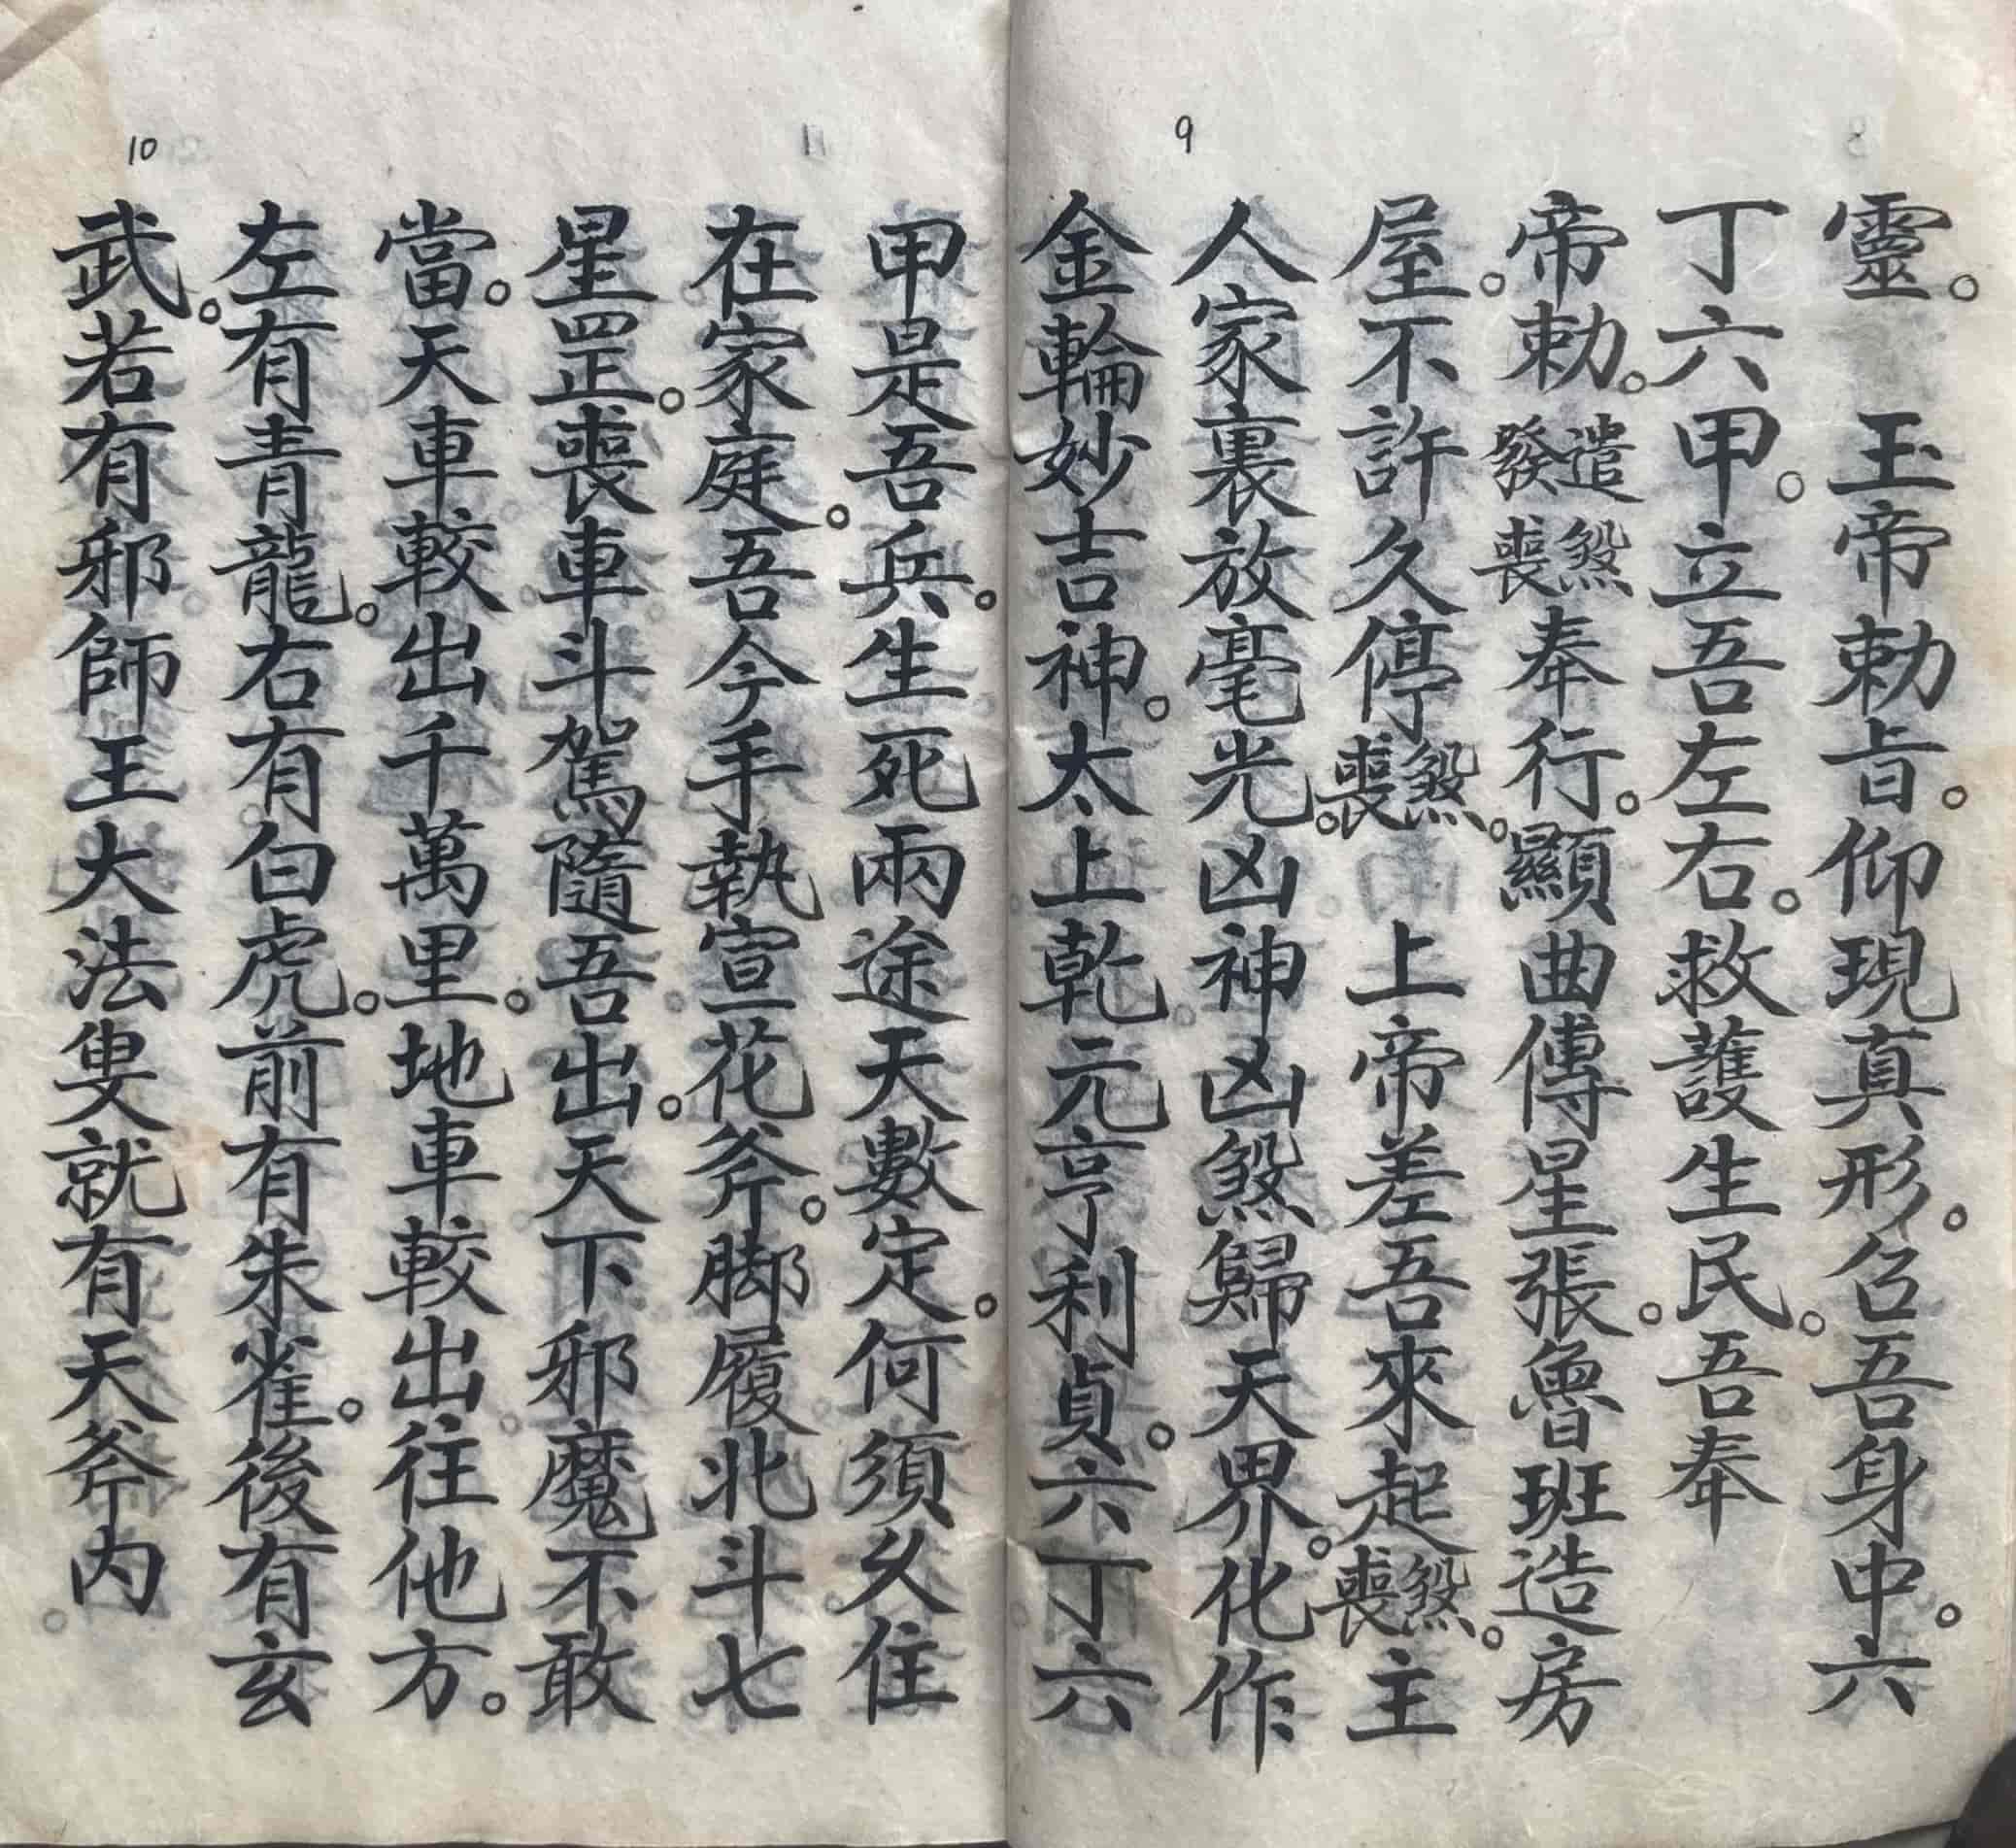 9
靈。 玉帝勅旨。仰現真形。召吾身中。六
丁六甲。立吾左右。救護生民。吾奉
帝勅。發遣喪煞奉行。顯曲傳星張。魯班造房
屋。不許久停喪煞。 上帝差吾來起喪煞。主
人家裏放毫光。凶神凶煞歸天界。化作
金輪妙吉神。太上乾元亨利貞。六丁六
10
甲是吾兵。生死兩途天數定。何須久住
在家庭。吾今手執宣花斧。脚履北斗七
星罡。喪車斗駕隨吾出。天下邪魔不敢
當。天車較出千萬里。地車較出往他方。
左有青龍。右有白虎。前有朱雀。後有玄
武。若有邪師王大法叟就有天斧內